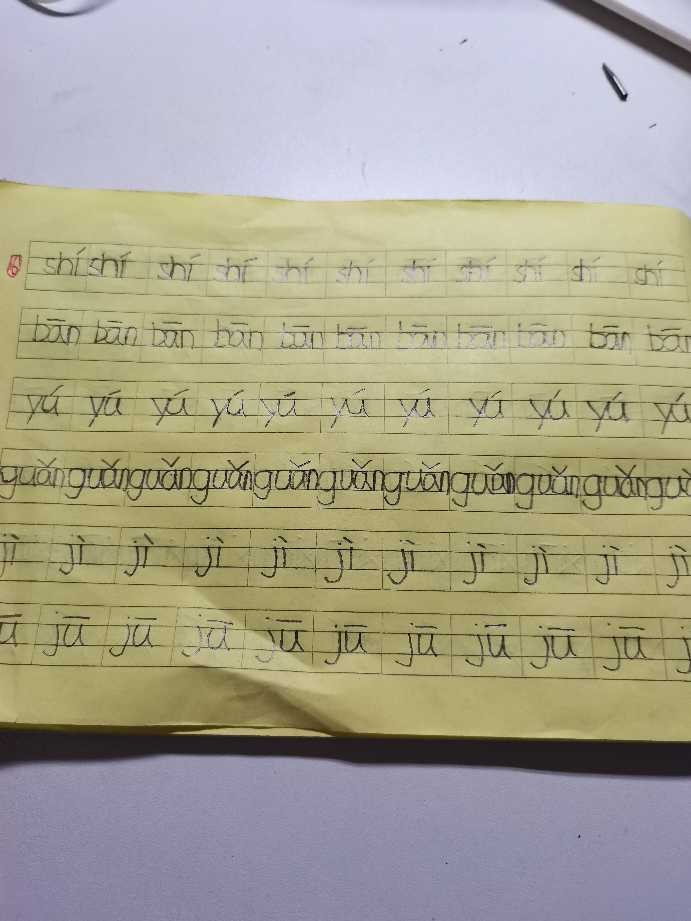 shí shí shí shí shí shí shí shí shí shí shí
bān bān bān bān bān bān bān bān bān bān bān
yú yú yú yú yú yú yú yú yú yú yú
guǎn guǎn guǎn guǎn guǎn guǎn guǎn guǎn guǎn guǎn
jì jì jì jì jì jì jì jì jì jì jì
jū jū jū jū jū jū jū jū jū